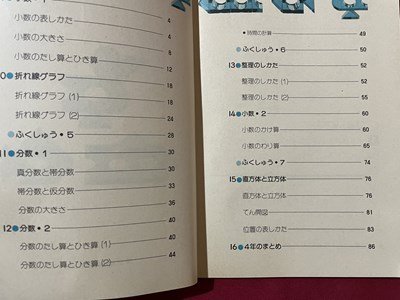 小数・1
小数の表しかた 4
小数の大きさ 8
小数のたし算とひき算 12
0●折れ線グラフ 18
折れ線グラフ (1) 18
折れ線グラフ (2) 24
●ふくしゅう・5 28
11●分数・1 30
真分数と帯分数 30
帯分数と仮分数 33
分数の大きさ 35
12●分数・2 40
分数のたし算とひき算 (1) 40
分数のたし算とひき算 (2) 44
●時間の計算 49
●ふくしゅう・6 50
13●整理のしかた 52
整理のしかた (1) 52
整理のしかた (2) 55
14●小数・2 60
小数のかけ算 60
小数のわり算 65
●ふくしゅう・7 74
15●直方体と立方体 76
直方体と立方体 76
てん開図 81
位置の表しかた 83
16●4年のまとめ 86